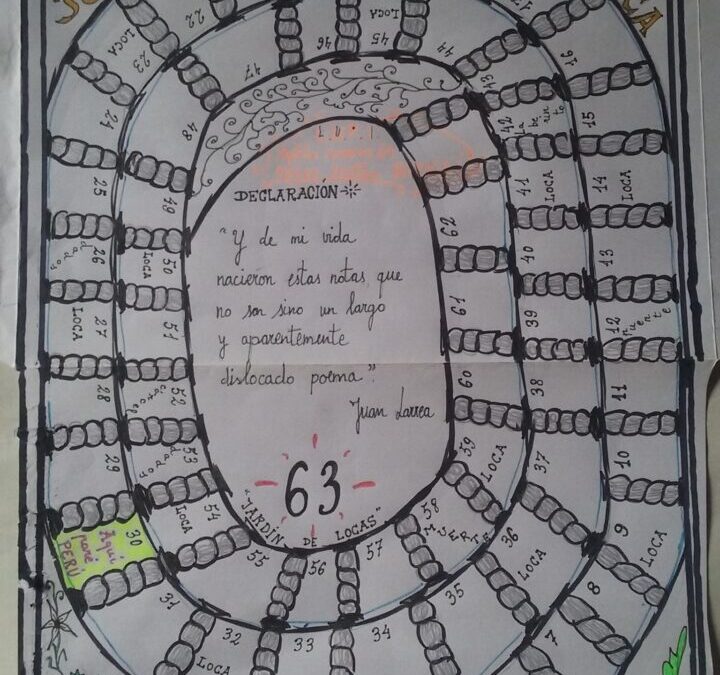 CA
DECLARACIÓN
"Y de mi vida
nacieron estas notas, que
no son sino un largo
y aparentemente
dislocado poema".
Juan Larrea
63
"JARDÍN DE LOCAS"
7
8
9 LOCA
10
11
12 Puente
13
14 LOCA
15
16
22
23 LOCA
24
25
26 dados
27 LOCA
28
29
30 Aquí
pané
PERÚ
31
32 LOCA
33
34
35
36 LOCA
37
38
39
40
41 LOCA
42 Laberinto
43
44
45 LOCA
46
47
48
49
50 LOCA
51
52 cárcel
53 dados
54 LOCA
55
56
57
58 MUERTE
59 LOCA
60
61
62